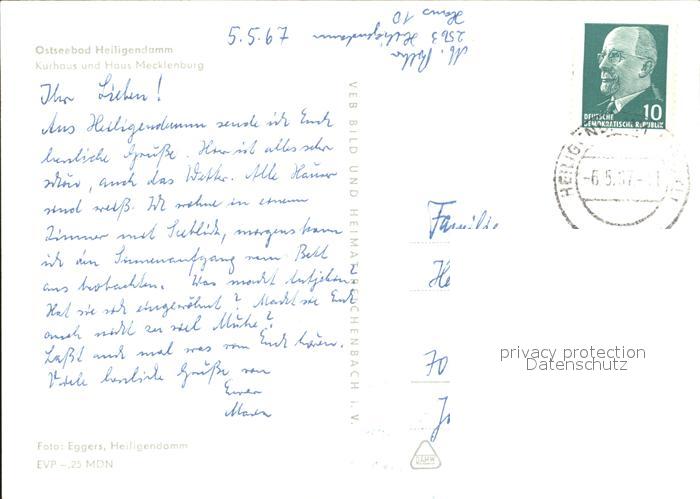 Ostseebad Heiligendamm
Kurhaus und Haus Mecklenburg
5.5.67
2563 Heiligendamm
Haus 10
Ihr Lieben!
Aus Heiligendamm sende ich Euch
herzliche Grüße. Hier ist alles sehr
schön, auch das Wetter. Alle Häuser
sind weiß. Wir wohne in einem
Zimmer mit Seeblick, morgens kann
ich den Sonnenaufgang vom Bett
aus beobachten. Was macht
Hat sie sich eingewöhnt? Macht sie Euch
auch nicht zu viel Mühe?
Laßt auch mal was von Euch hören.
Viele herzliche Grüße von
Eurer
VEB BILD UND HEIMAT REICHENBACH I. V.
DEUTSCHE
DEMOKRATISCHE REPUBLIK
10
-6.5.67-
Familie
He
70
Jo
privacy protection
Datenschutz
Foto: Eggers, Heiligendamm
EVP -,25 MDN